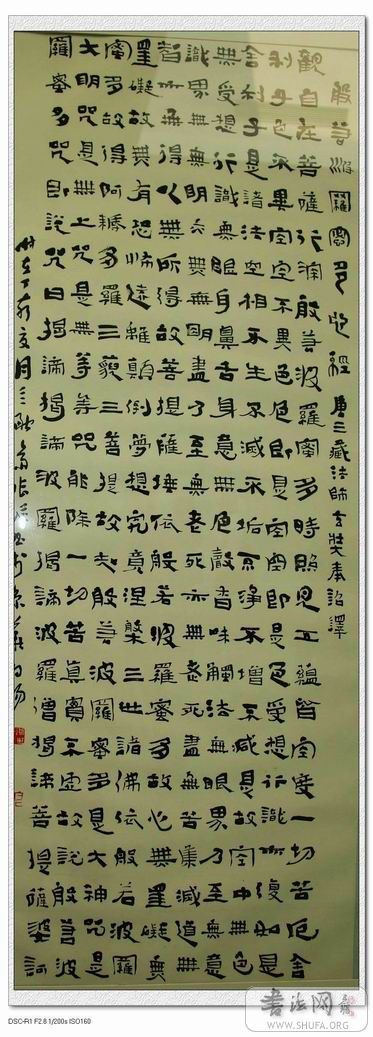 般若波羅蜜多心經 唐三藏法師玄奘奉詔譯
觀自在菩薩行深般若波羅蜜多時照見五蘊皆空度一切苦厄舍
利子色不異空空不異色色即是空空即是色受想行識亦復如是
舍利子是諸法空相不生不滅不垢不淨不增不減是故空中無色
無受想行識無眼耳鼻舌身意無色聲香味觸法無眼界乃至無意
識界無無明亦無無明盡乃至無老死亦無老死盡無苦集滅道無
智亦無得以無所得故菩提薩埵依般若波羅蜜多故心無罣礙無
罣礙故無有恐怖遠離顛倒夢想究竟涅槃三世諸佛依般若波羅
蜜多故得阿耨多羅三藐三菩提故知般若波羅蜜多是大神咒是
大明咒是無上咒是無等等咒能除一切苦真實不虛故說般若波
羅蜜多咒即說咒曰揭諦揭諦波羅揭諦波羅僧揭諦菩提薩婆訶
DSC-R1 F2.8 1/200s ISO160
书法网
WWW.SHUFA.ORG